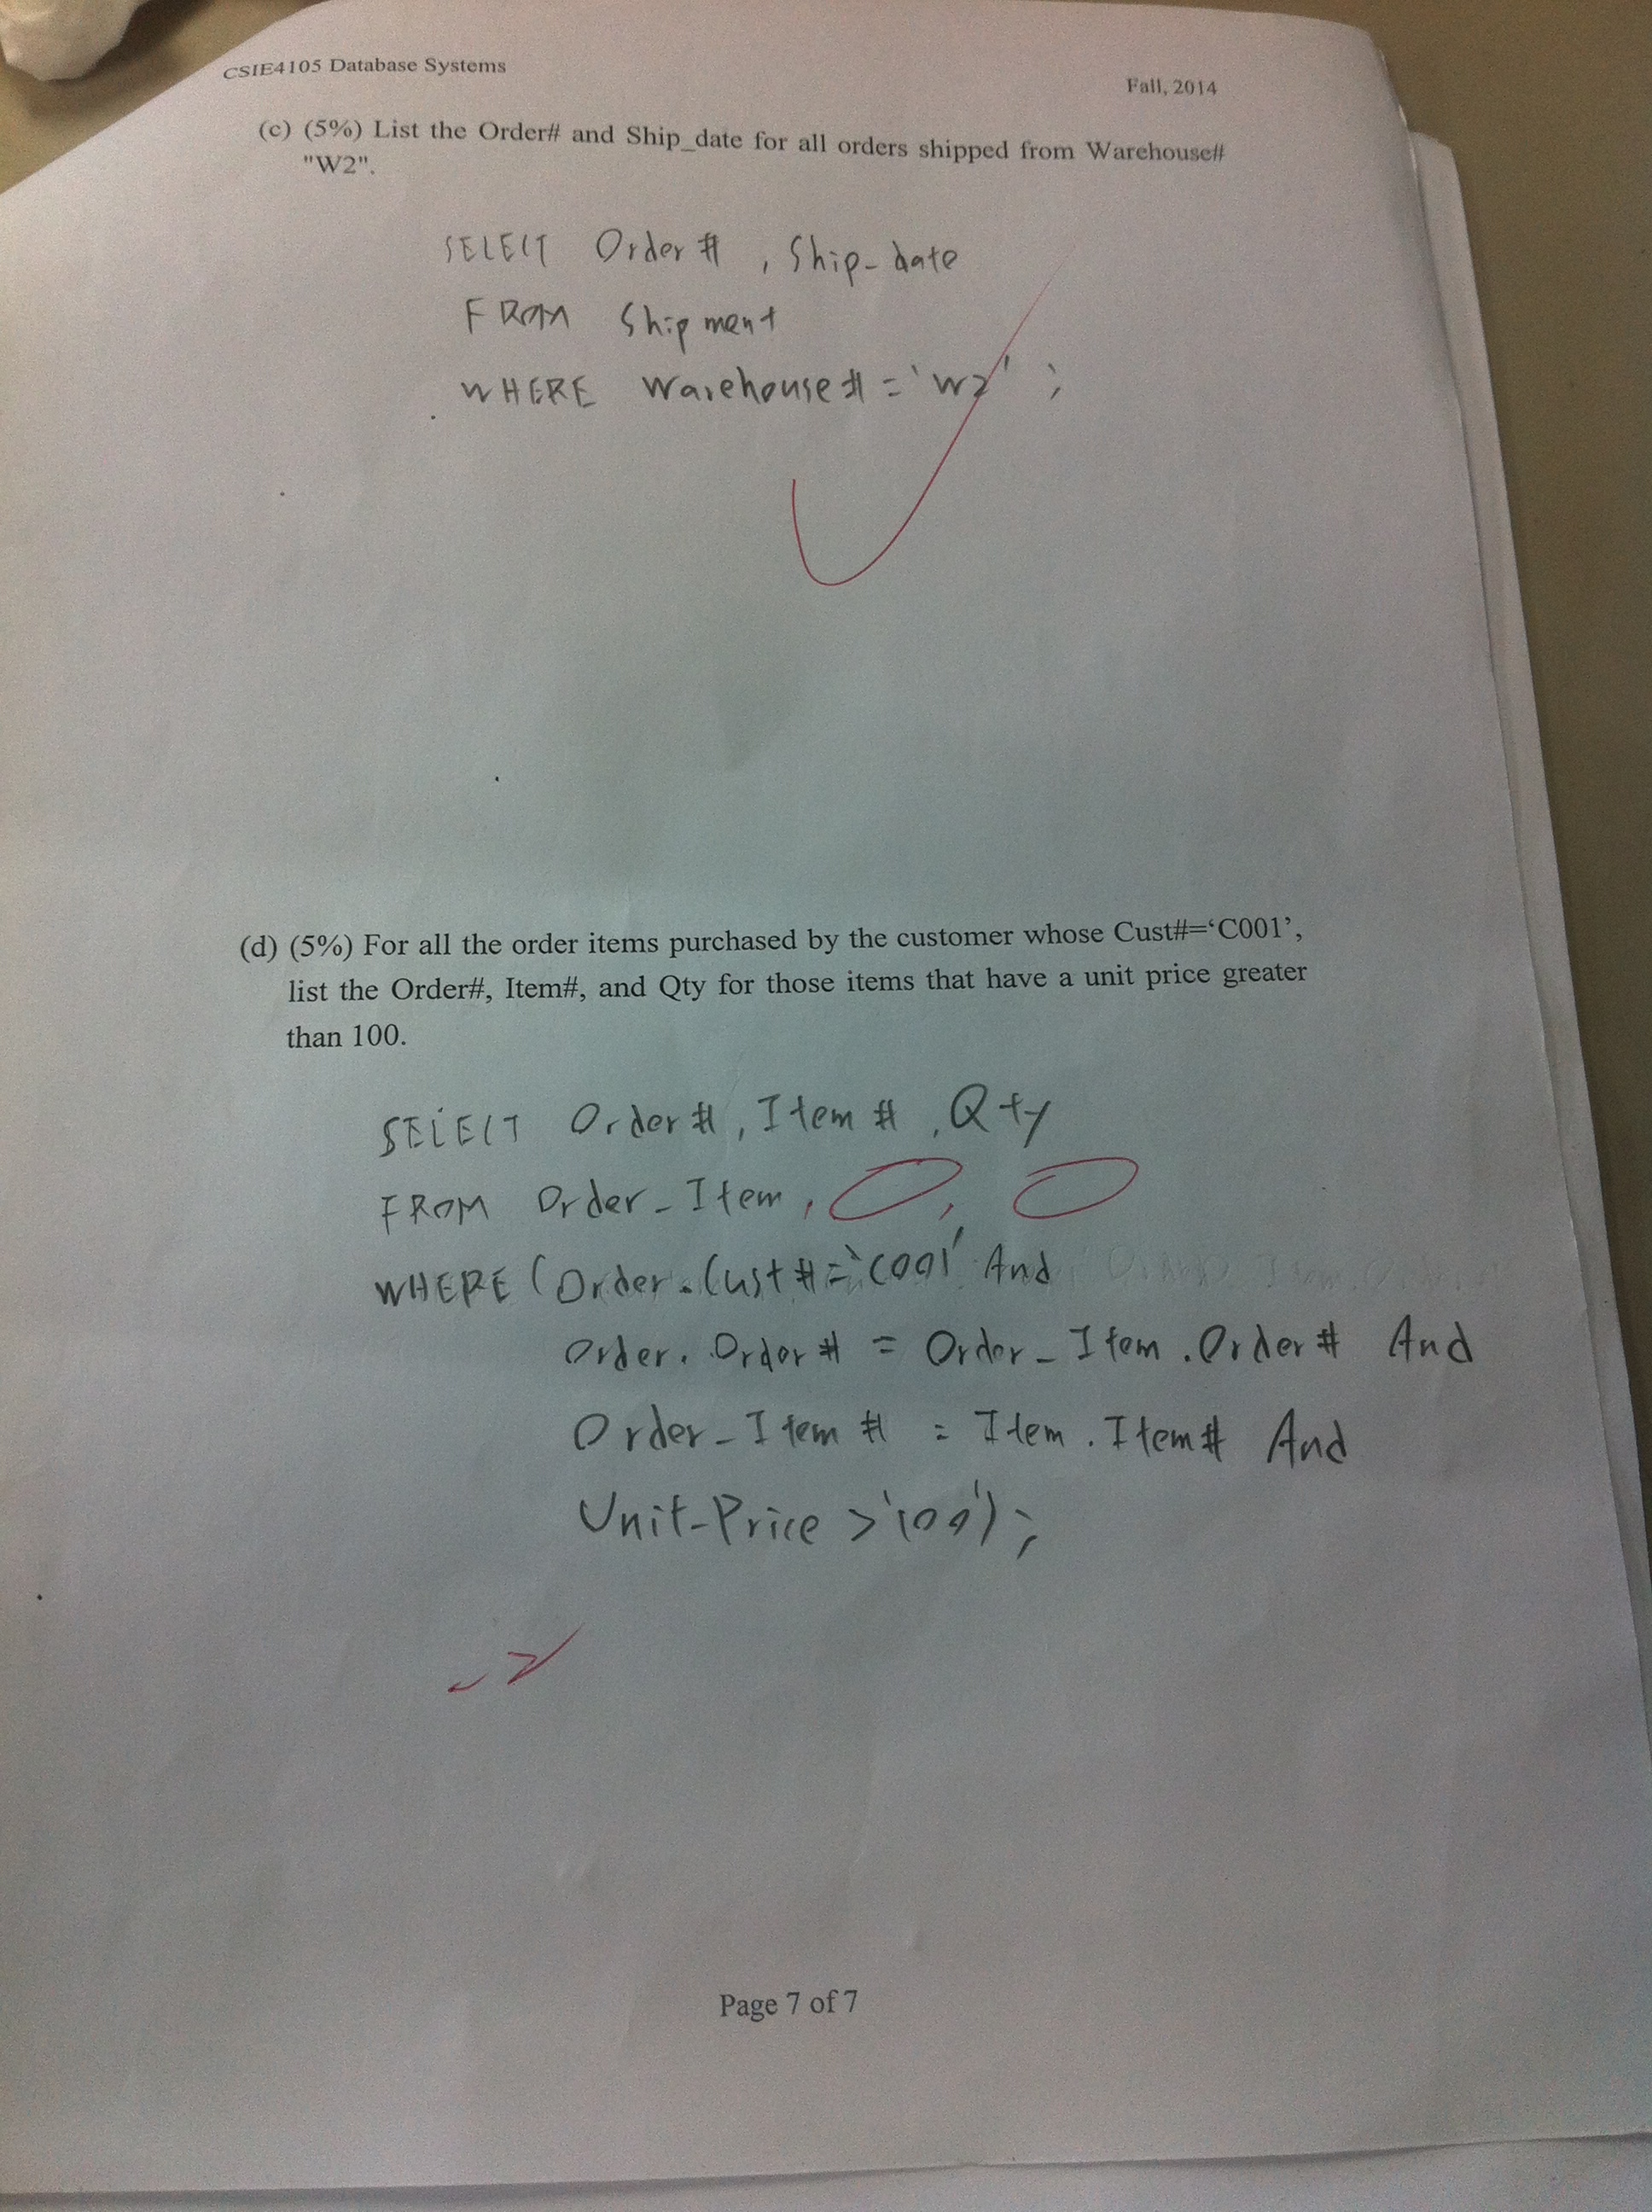 CSIE4105 Database Systems
Fall, 2014
(c) (5%) List the Order# and Ship_date for all orders shipped from Warehouse#
"W2".
SELECT Order# , Ship_date
FROM Shipment
WHERE Warehouse# = 'W2' ;
(d) (5%) For all the order items purchased by the customer whose Cust#=‘C001’,
list the Order#, Item#, and Qty for those items that have a unit price greater
than 100.
SELECT Order#, Item#, Qty
FROM Order_Item, ,
WHERE (Order.Cust# = 'C001' And
Order.Order# = Order_Item.Order# And
Order_Item# = Item.Item# And
Unit-Price > '100');
-2
Page 7 of 7